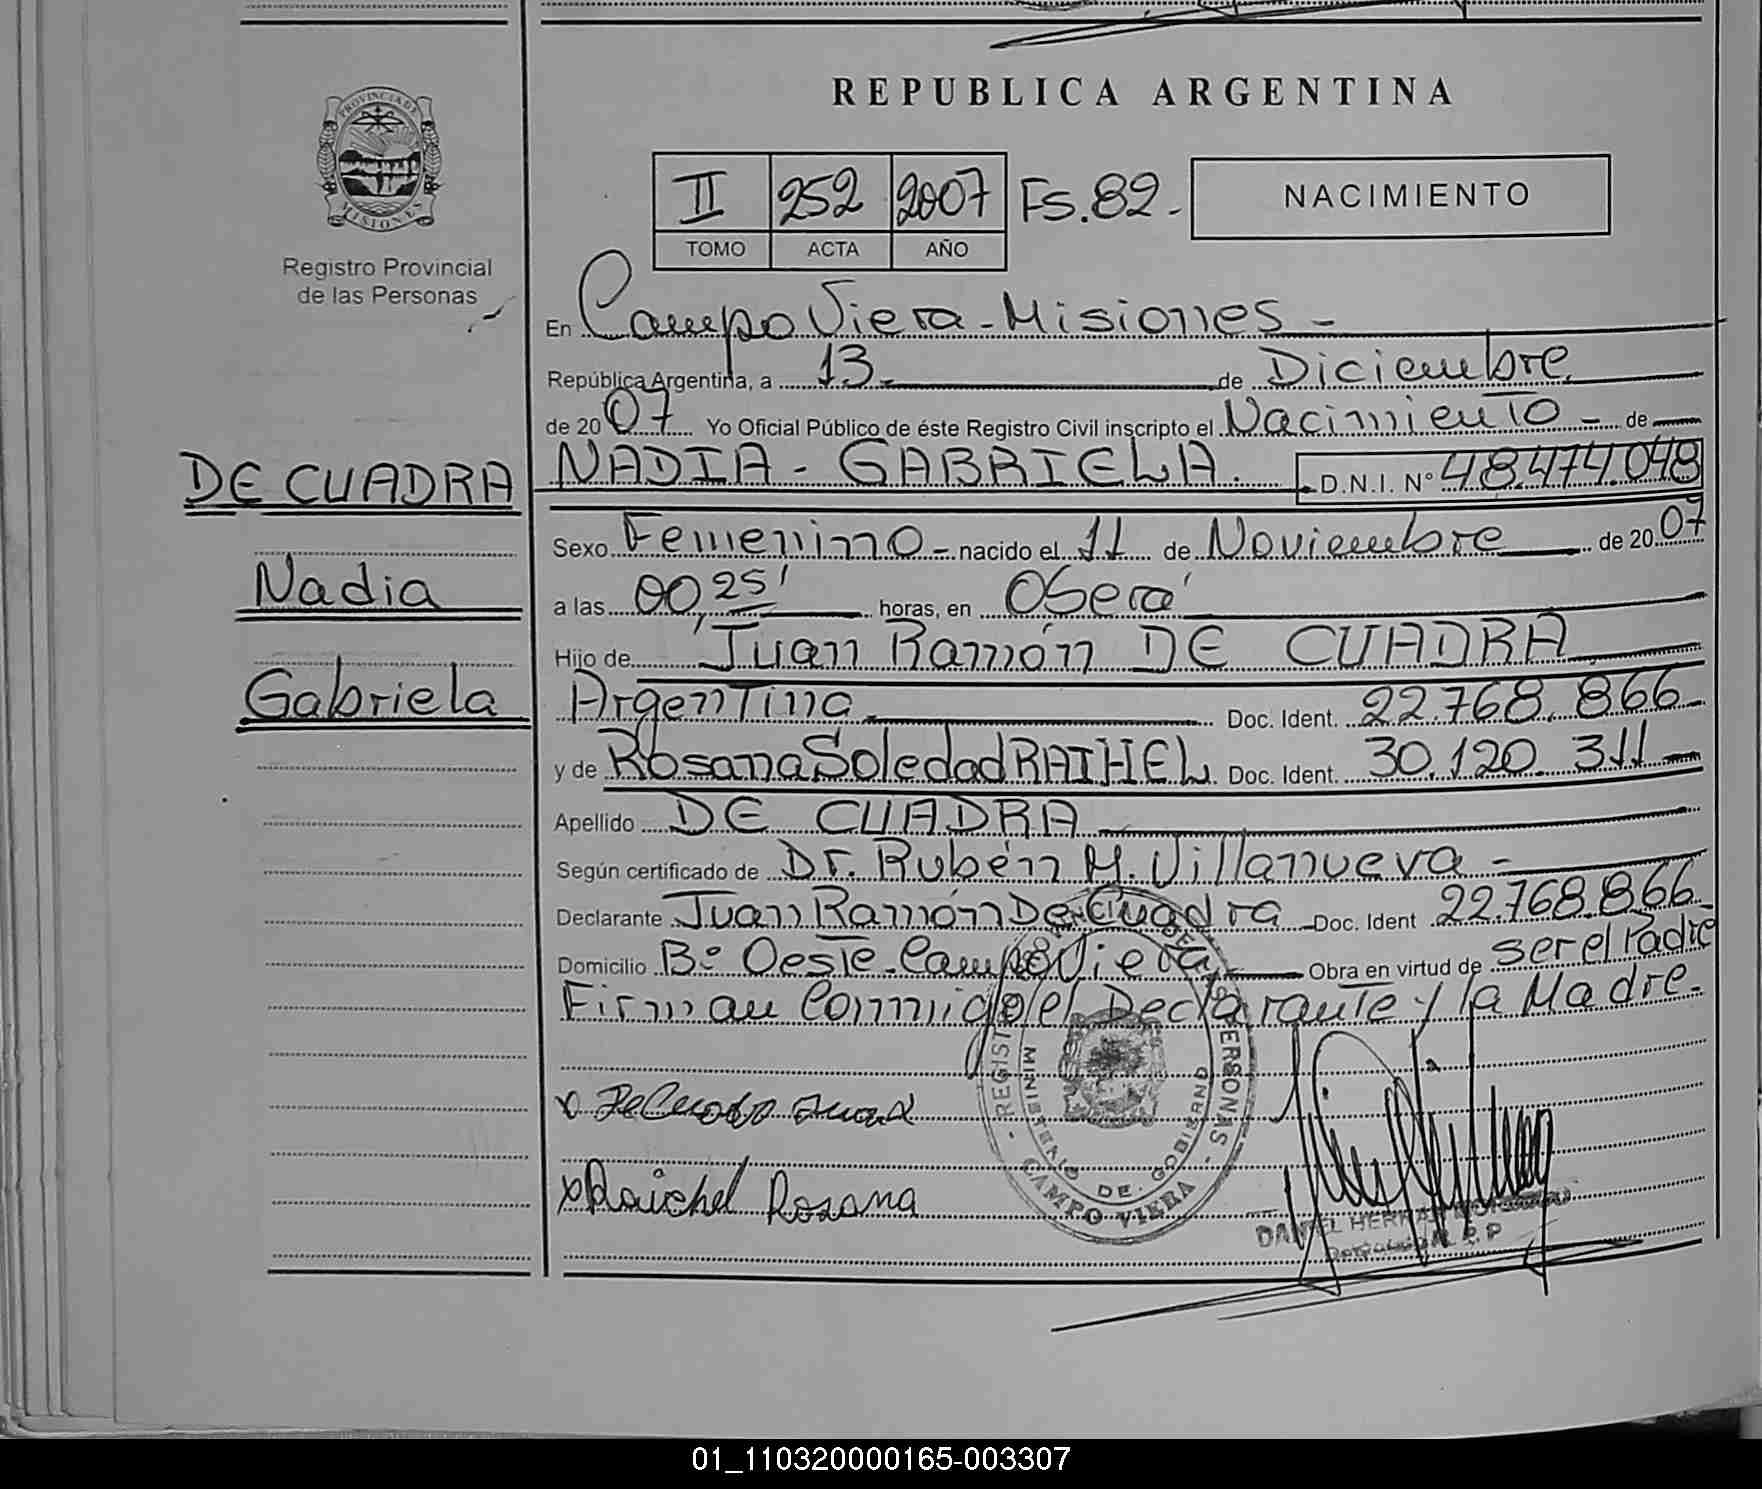 REPUBLICA ARGENTINA
PROVINCIA DE
MISIONES
Registro Provincial
de las Personas
II 252 2007 Fs.82.-
TOMO ACTA AÑO
NACIMIENTO
En Campo Viera - Misiones -
República Argentina, a 13 de Diciembre
de 2007 Yo Oficial Público de éste Registro Civil inscripto el Nacimiento - de
DE CUADRA
NADIA - GABRIELA. D.N.I. Nº 48.474.048
Sexo Femenino - nacido el 11 de Noviembre de 2007
Nadia
a las 00,25' horas, en Oberá
Hijo de Juan Ramón DE CUADRA
Gabriela
Argentina Doc. Ident. 22.768.866
y de Rosana Soledad RAIHEL Doc. Ident. 30.120.311
Apellido DE CUADRA
Según certificado de Dr. Rubén M. Villanueva -
Declarante Juan Ramón De Cuadra Doc. Ident 22.768.866
Domicilio Bº Oeste. Campo Viera, Obra en virtud de ser el Padre
Firman Conmigo el Declarante y la Madre.
x De Cuadra Juan
x Raichel Rosana
MINISTERIO DE GOBIERNO
CAMPO VIERA
DANIEL
01_110320000165-003307